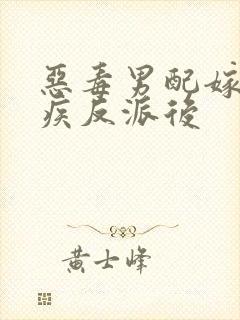 惡毒男配嫁
疾反派後
黃士峰